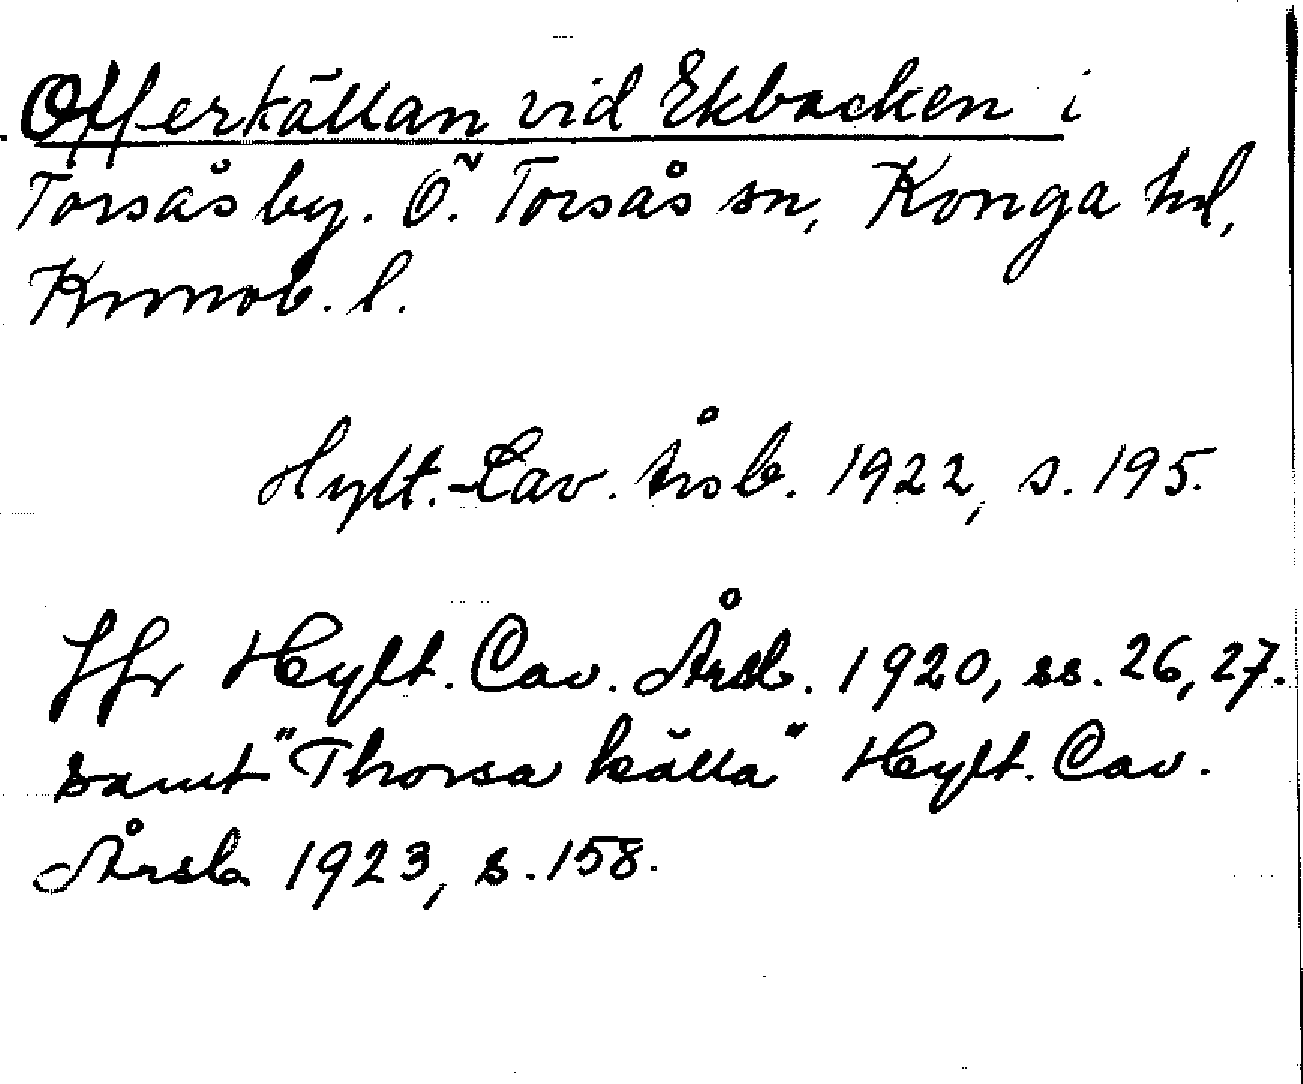 Offerkällan vid Ekbacken i
Torsås by. Ö. Torsås sn, Konga hd,
Kronob. l.
Hylt.-Cav. årsb. 1922, s. 195.
Jfr Hylt. Cav. Årsb. 1920, ss. 26, 27.
samt "Thorsa källa" Hylt. Cav.
Årsb. 1923, s. 158.